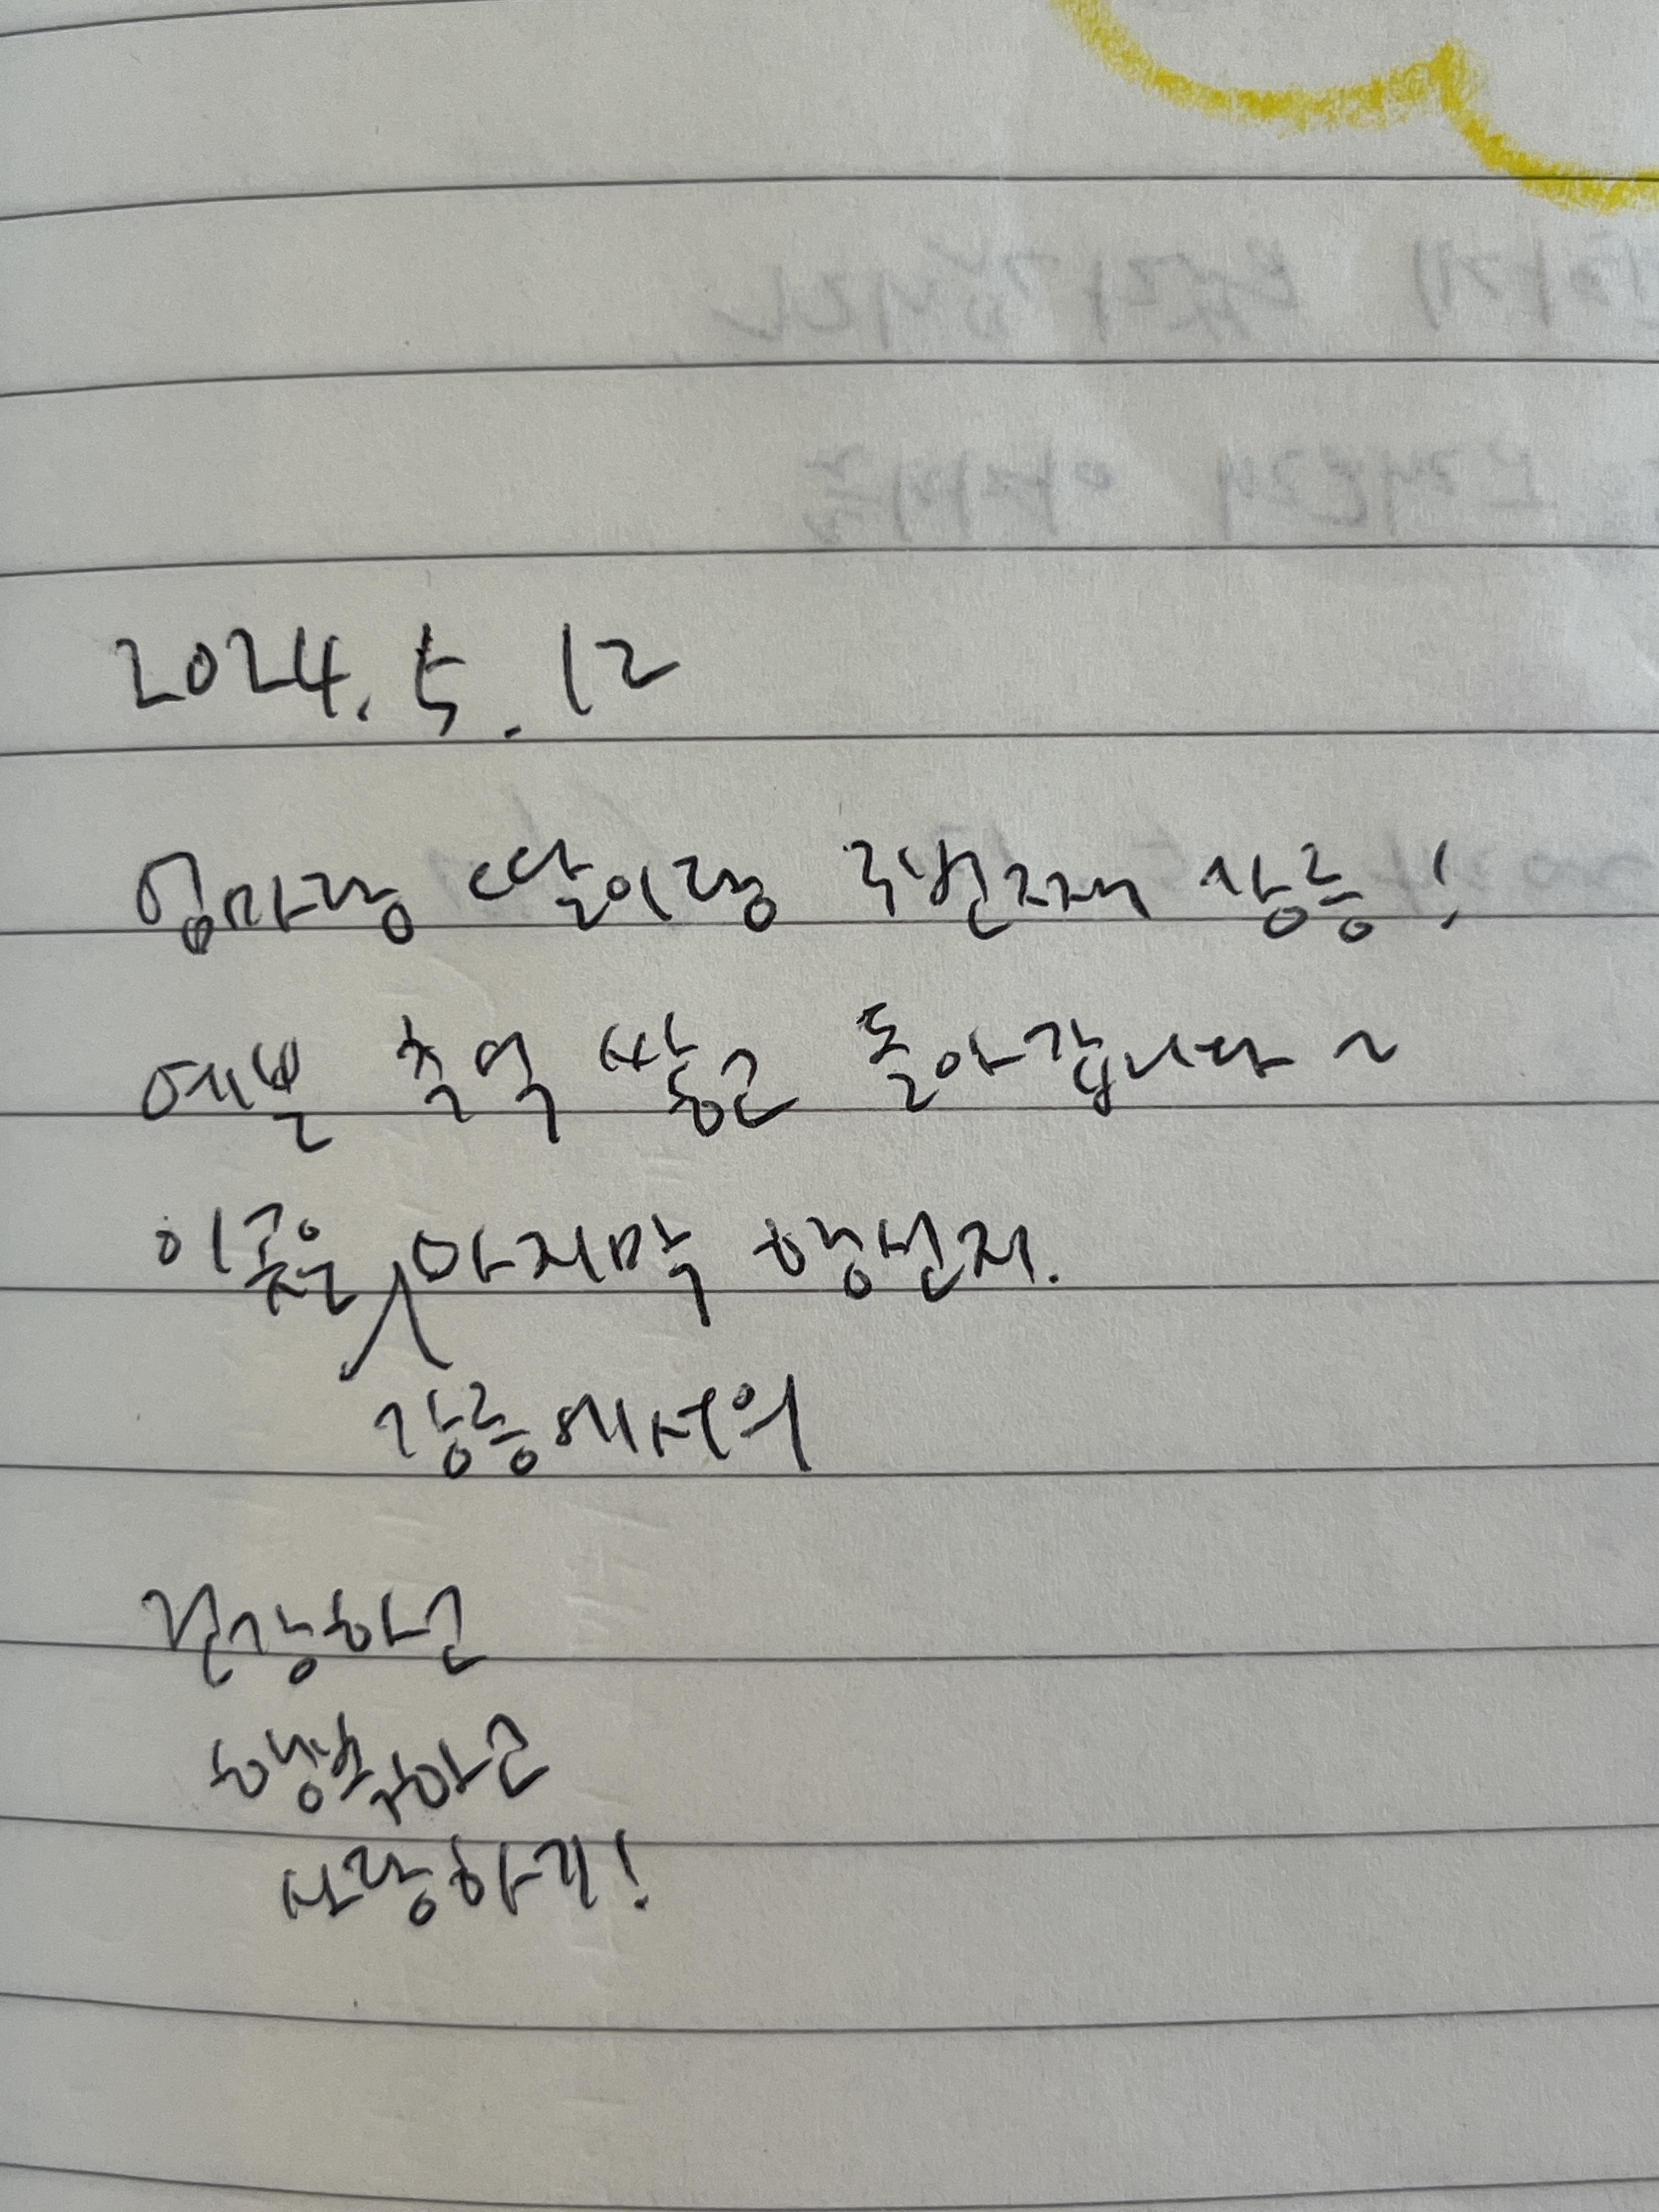 2024. 5. 12
엄마랑 딸이랑 두번째 강릉!
예쁜 추억 쌓고 돌아갑니다~
이곳은 마지막 행선지.
강릉에서의
건강하고
행복하고
사랑하기!